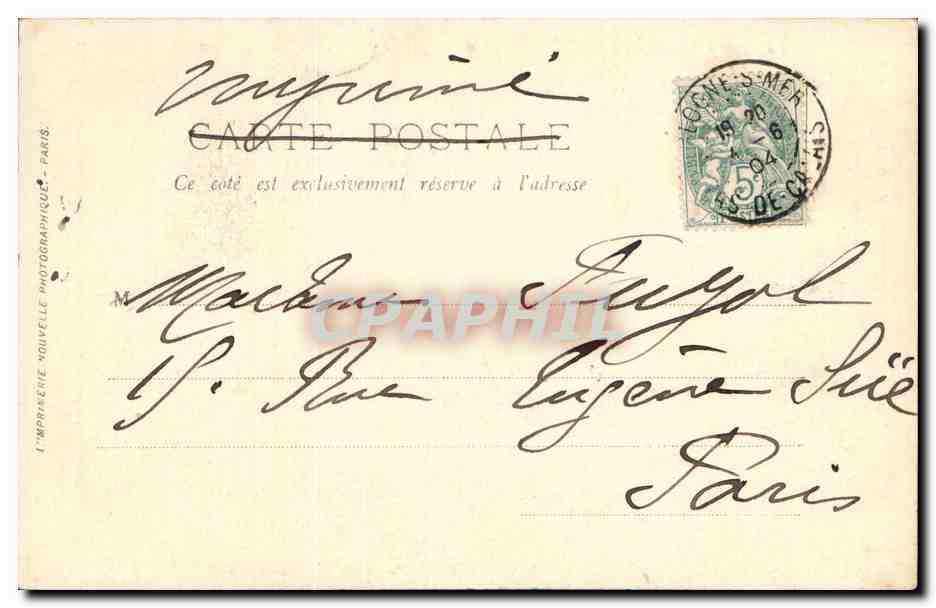 Imprimé
CARTE POSTALE
Ce côté est exclusivement réservé à l'adresse
LOGNE-S-MER
19 20
6
04
DE-CALAIS
5c
Madame
15. Rue Eugène Süe
Paris
CPAPHIL
IMPRIMERIE NOUVELLE PHOTOGRAPHIQUE - PARIS.